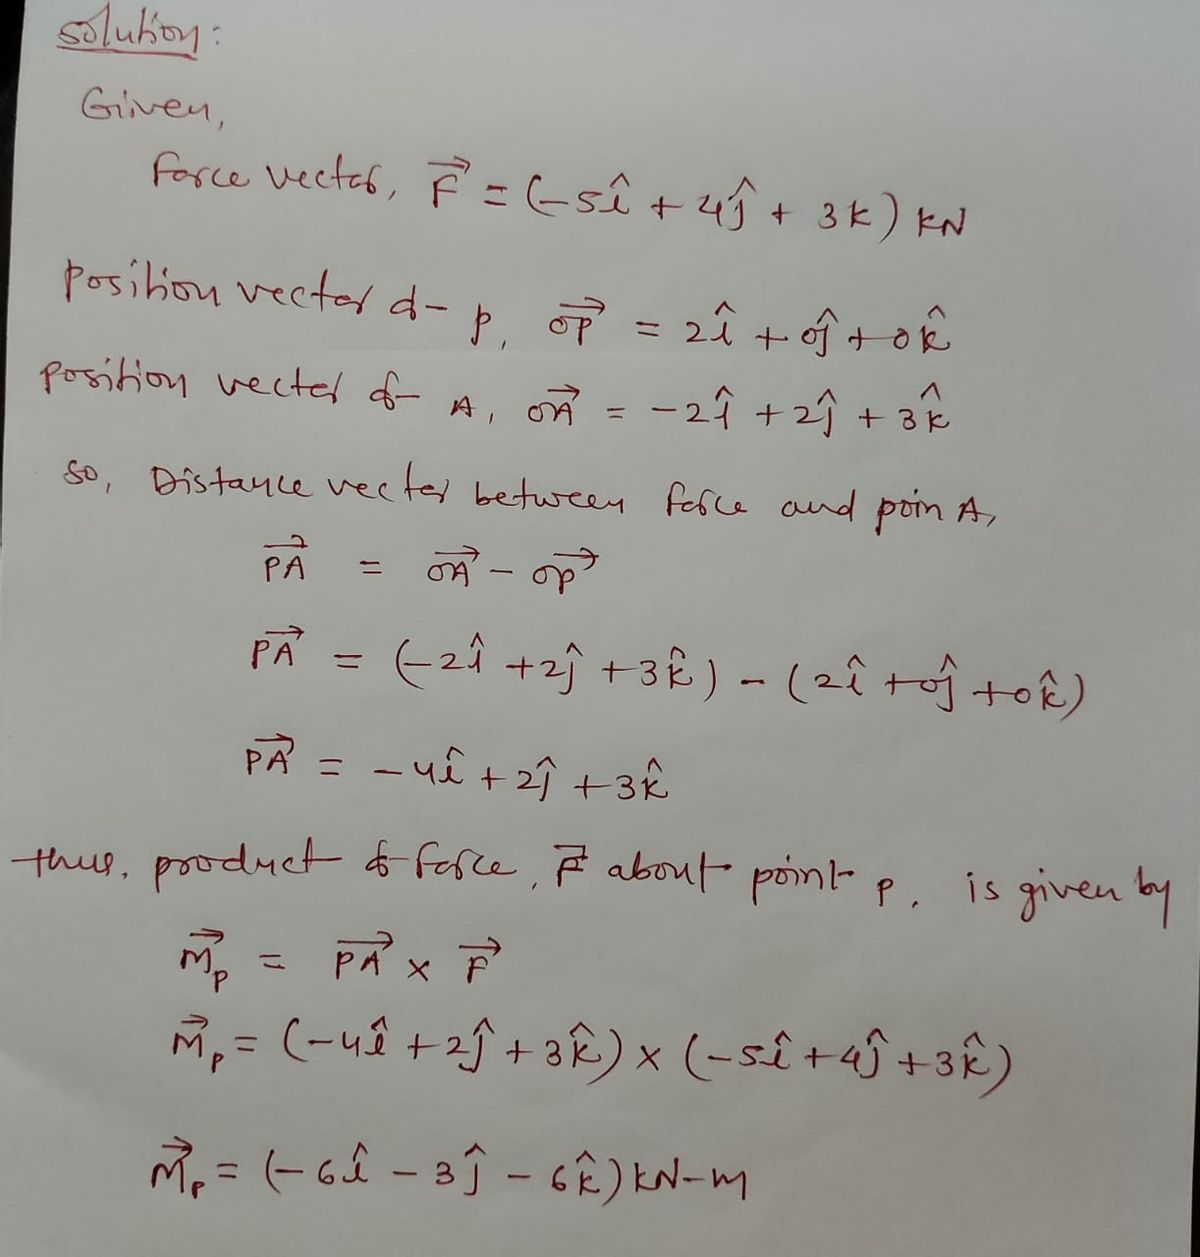 Solution:
Given,
Force vector, F⃗ = (-5î + 4ĵ + 3k) kN
Position vector of P, OP⃗ = 2î + 0ĵ + 0k̂
Position vector of A, OA⃗ = -2î + 2ĵ + 3k̂
So, Distance vector between force and poin A,
PA⃗ = OA⃗ - OP⃗
PA⃗ = (-2î + 2ĵ + 3k̂) - (2î + 0ĵ + 0k̂)
PA⃗ = -4î + 2ĵ + 3k̂
thus, product of force, F⃗ about point P, is given by
M⃗p = PA⃗ × F⃗
M⃗p = (-4î + 2ĵ + 3k̂) × (-5î + 4ĵ + 3k̂)
M⃗p = (-6î - 3ĵ - 6k̂) kN-m